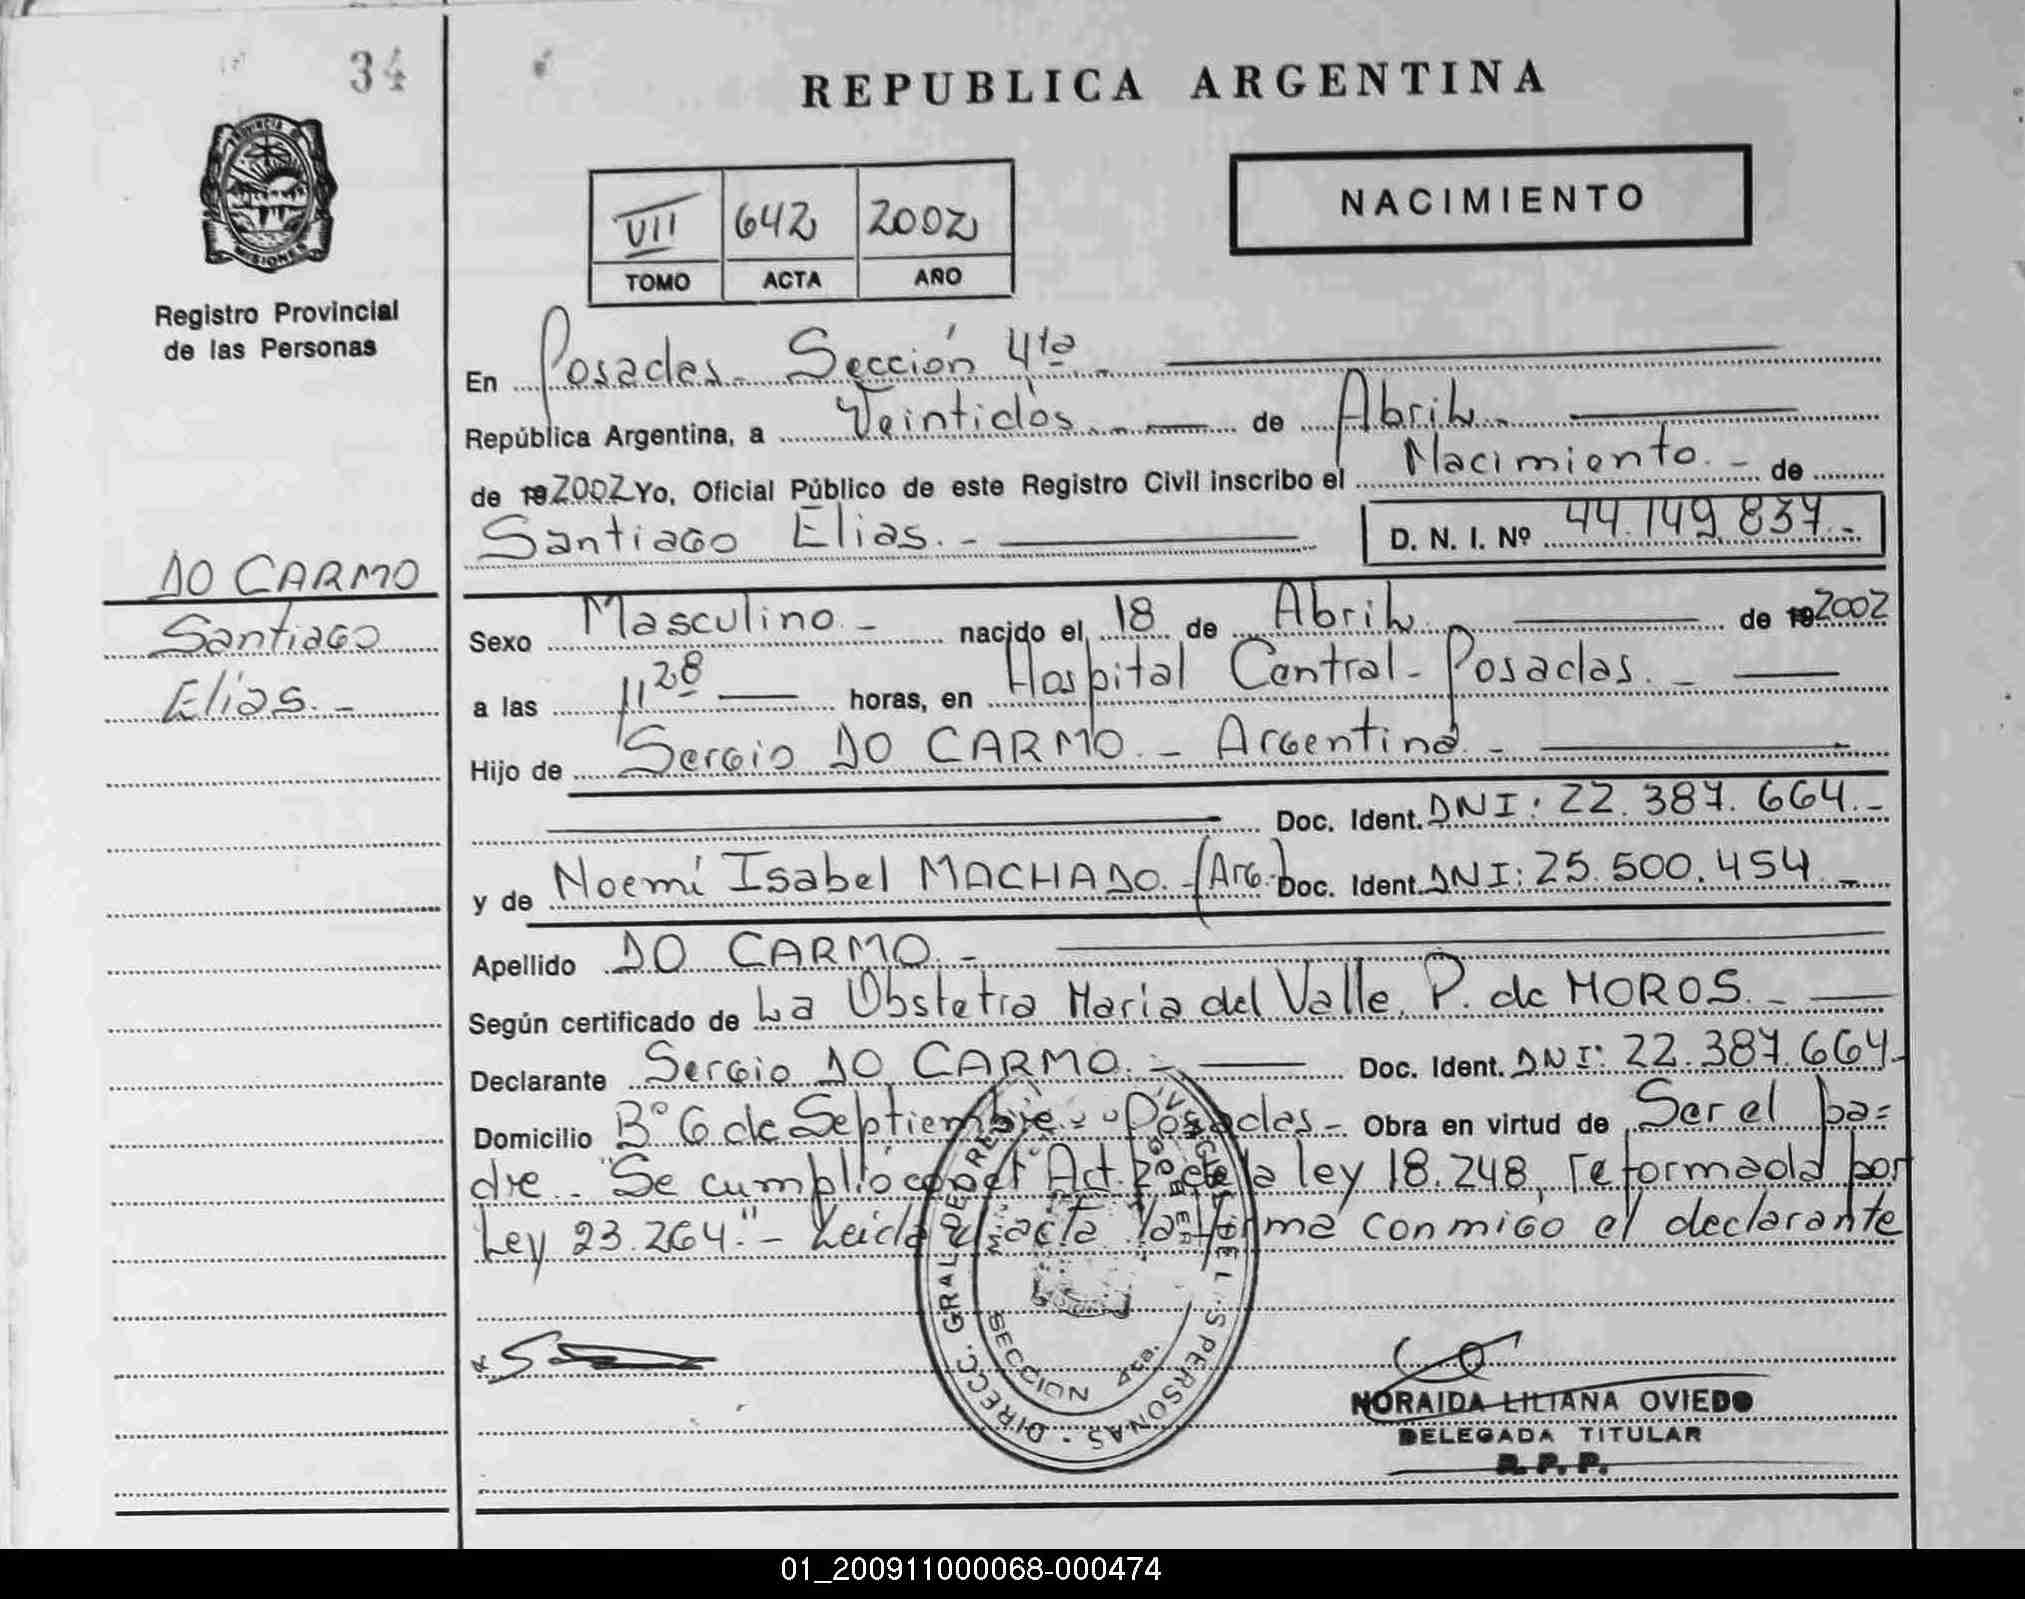 34
REPUBLICA ARGENTINA
PROVINCIA DE
MISIONES
Registro Provincial
de las Personas
VII 642 2002
TOMO ACTA AÑO
NACIMIENTO
En Posadas - Sección 4ta -
República Argentina, a Veintidós - de Abril
de 19 2002 Yo, Oficial Público de este Registro Civil inscribo el Nacimiento - de
Santiago Elias. - D. N. I. Nº 44.149.837.-
DO CARMO
Santiago
Elias. -
Sexo Masculino - nacido el 18 de Abril de 19 2002
a las 11 28 horas, en Hospital Central - Posadas. -
Hijo de Sergio DO CARMO - Argentina -
Doc. Ident. DNI: 22.387.664.-
y de Noemí Isabel MACHADO. - (Arg.) Doc. Ident. DNI: 25.500.454. -
Apellido DO CARMO. -
Según certificado de La Obstetra Maria del Valle P. de MOROS. -
Declarante Sergio DO CARMO. - Doc. Ident. DNI: 22.387.664.-
Domicilio Bº 6 de Septiembre - Posadas - Obra en virtud de Ser el pa=
dre. "Se cumplió con el Art. de la ley 18.248, reformada por
Ley 23.264." - Leida el acta la firma conmigo el declarante
DIRECC. GRAL. DE
PERSONAS
SECCION 4ta.
NORAIDA LILIANA OVIEDO
DELEGADA TITULAR
R. P. P.
01_200911000068-000474